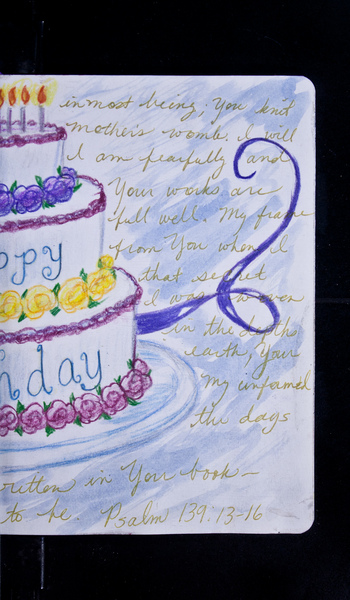 inmost being; You knit
mothers womb. I will
I am fearfully and
Your works are
full well. My frame
from You when I
ppy
that secret
I was woven
in the depths
earth, Your
day
My unformed
the days
written in You book—
to be. Psalm 139:13-16